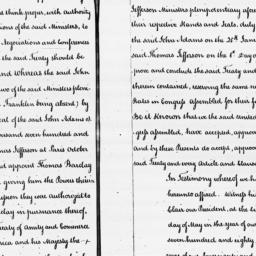 think proper, with authority
ions of the said Ministers, to
Negociations and Conferences
the said Treaty should be
and whereas the said John
two of the said Ministers pleni-
Franklin being absent) by
eal of the said John Adams at
ousand seven hundred and
Jefferson at Paris October
and appoint Thomas Barclay
giving him the Powers therein
upon they were authorized to
clay in pursuance thereof,
Treaty of Amity and Commerce
ica and his Majesty the
Jefferson Ministers plenipotentiary aforesaid
their respective Hands and Seals, duly
the said John Adams on the 25th
said Thomas Jefferson on the 1st Day of
prove and conclude the said Treaty and
therein contained, reserving the same
States in Congress Assembled for their
BE it Known that we the said United
gress assembled, have accepted, approved
and by these Presents do accept, approve
said Treaty and every Article and Clause
In Testimony whereof we
hereunto affixed. Witness
Clair our President, at the
day of May in the year of our
seven hundred and eighty